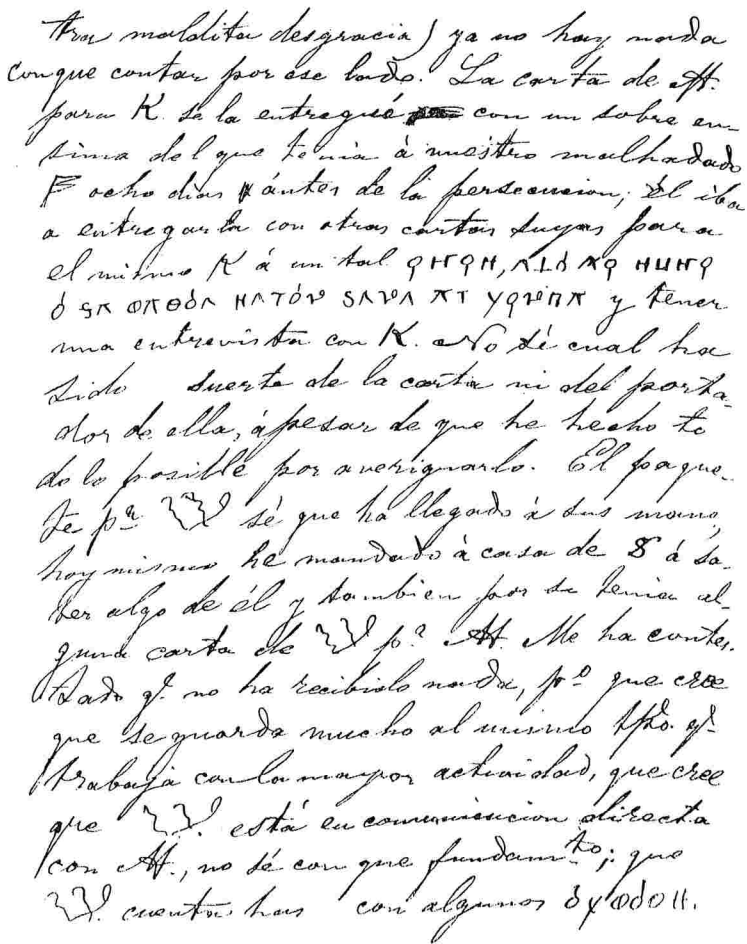 tra maldita desgracia) ya no hay nada
con que contar por ese lado. La carta de H.
para K. se la entregué con un sobre en-
sima del que tenia á nuestro malhadado
F ocho dias ántes de la persecucion; él iba
a entregarla con otras cartas suyas para
el mismo K á un tal
y tener
una entrevista con K. No sé cual ha
sido suerte de la carta ni del porta-
dor de ella, ápesar de que he hecho to
do lo posible por averiguarlo. El paque-
te pª sé que ha llegado á sus manos,
hoy mismo he mandado á casa de S á sa-
ber algo de él y tambien por si tenia al-
guna carta de pª H. Me ha contes-
tado q.e no ha recibido nada, pº que cree
que se guarda mucho al mismo tpo. q.e
trabaja con la mayor actividad, que cree
que está en comunicacion directa
con H., no sé con que fundam.to; que
cuenta has con algunos